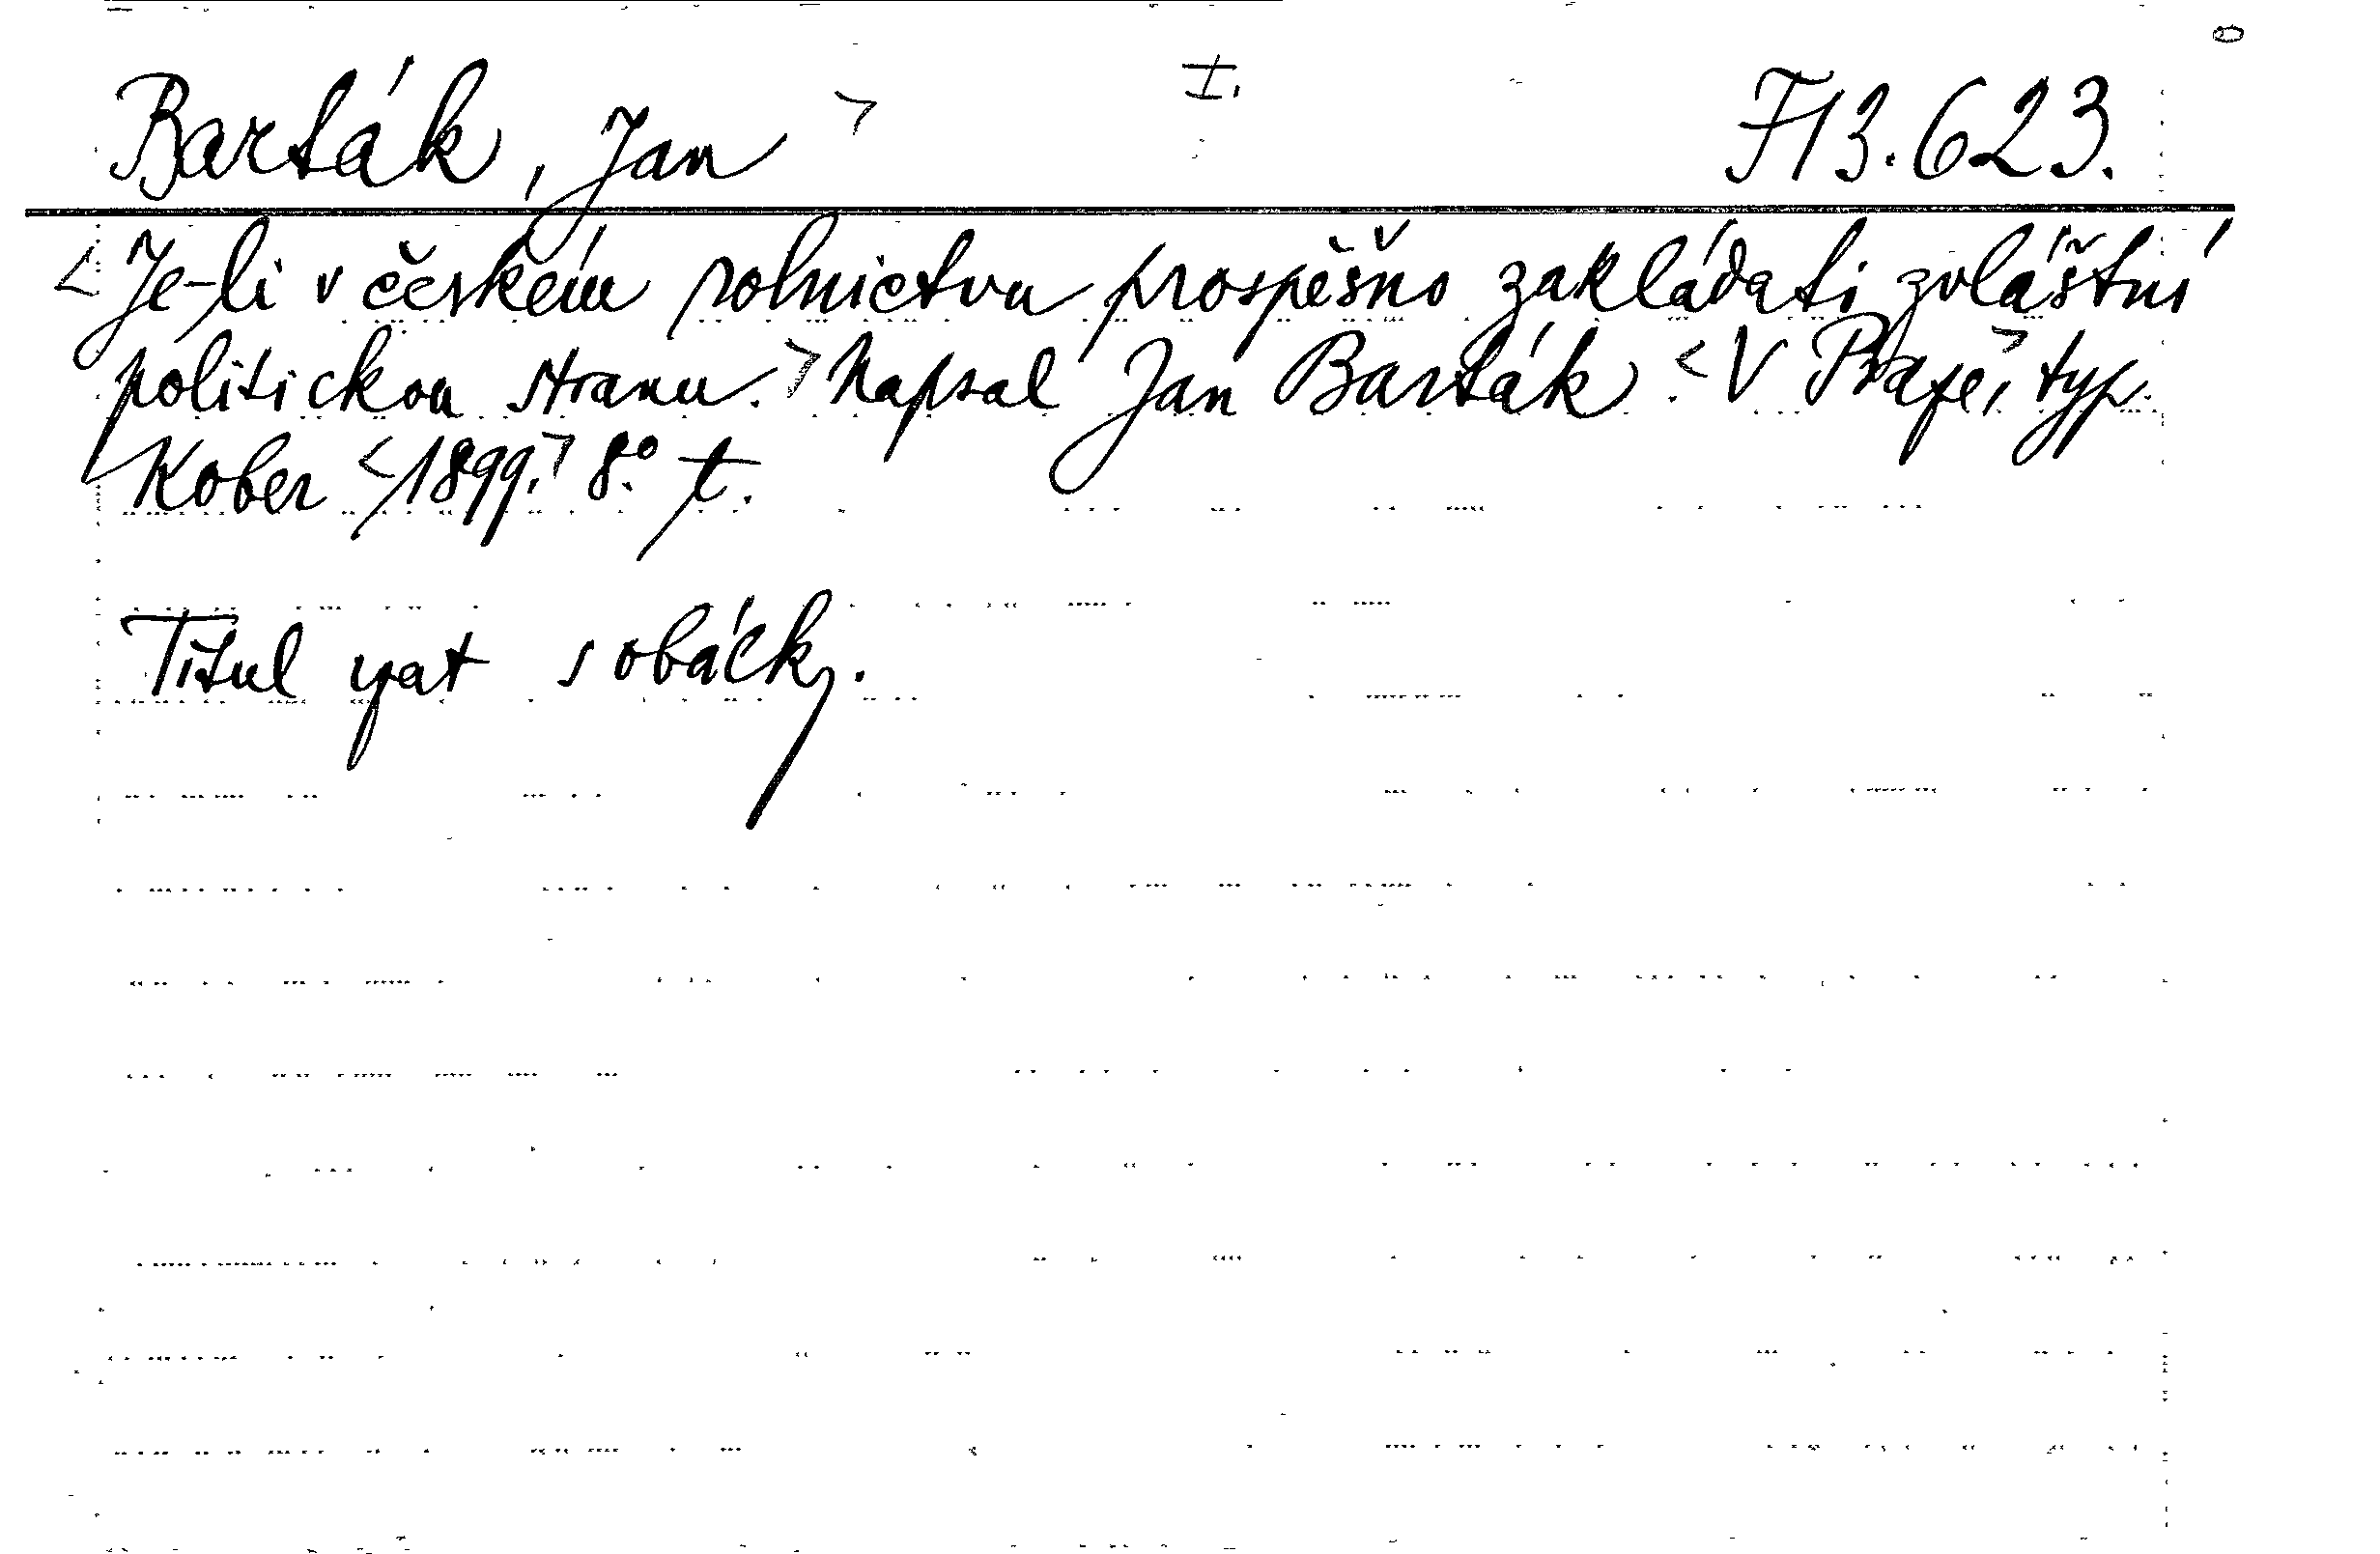 Barták, Jan > I. F13.623.
< Je-li v českém rolnictvu prospěšno zakládati zvláštní
politickou stranu. > Napsal Jan Barták. < V Praze, > typ.
Kober < 1899. > 8.° t.
Titul yat sobáck.